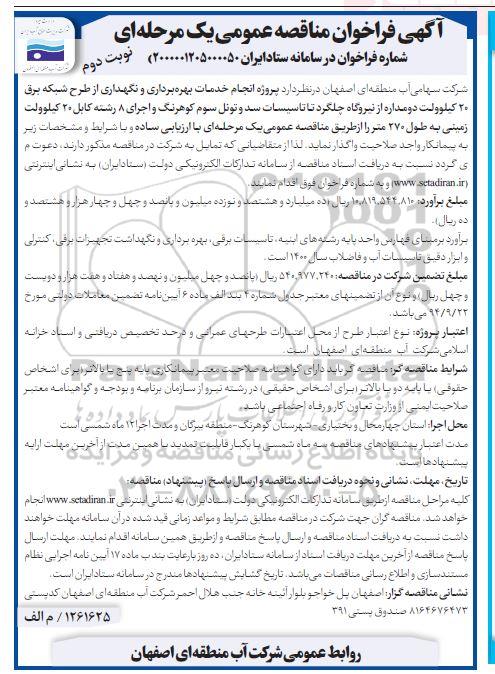 آگهی فراخوان مناقصه عمومی یک مرحله‌ای
شماره فراخوان در سامانه ستادایران (۲۰۰۰۰۰۱۲۰۵۰۰۰۰۵۰)
نوبت دوم
شرکت سهامی آب منطقه‌ای اصفهان درنظر دارد پروژه انجام خدمات بهره‌برداری و نگهداری از طرح شبکه برق
۲۰ کیلوولت دومداره از نیروگاه چلگرد تا تاسیسات سد و تونل سوم کوهرنگ و اجرای ۸ رشته کابل ۲۰ کیلوولت
زمینی به طول ۲۷۰ متر را ازطریق مناقصه عمومی یک مرحله‌ای با ارزیابی ساده و با شرایط و مشخصات زیر
به پیمانکار واجد صلاحیت واگذار نماید. لذا از متقاضیانی که تمایل به شرکت در مناقصه مذکور دارند، دعوت م ی
گردد نسبت به دریافت اسناد مناقصه از سامانه تدارکات الکترونیکی دولت (ستادایران) به نشانی اینترنتی
(www.setadiran.ir) و به شماره فراخوان فوق اقدام نمایند.
مبلغ برآورد: ۱۰,۸۱۹,۵۴۴,۸۱۰ ریال (ده میلیارد و هشتصد و نوزده میلیون و پانصد و چهل و چهار هزار و هشتصد و
ده ریال).
برآورد برمبنای فهارس واحد پایه رشته‌های ابنیه، تاسیسات برقی، بهره برداری و نگهداشت تجهیزات برقی، کنترلی
و ابزار دقیق تاسیسات آب و فاضلاب سال ۱۴۰۰ است.
مبلغ تضمین شرکت در مناقصه: ۵۴۰,۹۷۷,۲۴۰ ریال (پانصد و چهل میلیون و نهصد و هفتاد و هفت هزار و دویست
و چهل ریال) و نوع آن از تضمینهای معتبر جدول شماره ۴ بند الف ماده ۶ آیین‌نامه تضمین معاملات دولتی مورخ
۹۴/۹/۲۲ می‌باشد.
اعتبار پروژه: نوع اعتبار طرح از محل اعتبارات طرحهای عمرانی و درصد تخصیص دریافتی و اسناد خزانه
اسلامی شرکت آب منطقه‌ای اصفهان است.
شرایط مناقصه گر: مناقصه گر باید دارای گواهینامه صلاحیت معتبر پیمانکاری پایه پنج یا بالاتر (برای اشخاص
حقوقی) یا پایه دو یا بالاتر (برای اشخاص حقیقی) در رشته نیرو از سازمان برنامه و بودجه و گواهینامه معتبر
صلاحیت ایمنی از وزارت تعاون کار و رفاه اجتماعی باشد.
محل اجرا: استان چهارمحال وبختیاری-شهرستان کوهرنگ-منطقه بیرگان و مدت اجرا ۱۲ ماه شمسی است
مدت اعتبار پیشنهادهای مناقصه سه ماه شمسی با یکبار قابلیت تمدید با همین مدت از آخرین مهلت ارایه
پیشنهادها است.
تاریخ، مهلت، نشانی و نحوه دریافت اسناد مناقصه و ارسال پاسخ (پیشنهاد) مناقصه:
کلیه مراحل مناقصه ازطریق سامانه تدارکات الکترونیکی دولت (ستادایران) به نشانی اینترنتی www.setadiran.ir انجام
خواهد شد. مناقصه گران جهت شرکت در مناقصه مطابق شرایط و مواعد زمانی قید شده در آن سامانه مهلت خواهند
داشت نسبت به دریافت اسناد مناقصه و ارسال پاسخ مناقصه و ازطریق همین سامانه اقدام نمایند. مهلت ارسال
پاسخ مناقصه از آخرین مهلت دریافت اسناد از سامانه ستادایران، ده روز بارعایت بند ب ماده ۱۷ آیین نامه اجرایی نظام
مستندسازی و اطلاع رسانی مناقصات می‌باشد. تاریخ گشایش پیشنهادها مندرج در سامانه ستادایران است.
نشانی مناقصه گزار: اصفهان پل خواجو بلوار آئینه خانه جنب هلال احمر شرکت آب منطقه‌ای اصفهان کدپستی
۸۱۶۴۶۷۶۴۷۳ صندوق پستی ۳۹۱
۱۲۶۱۶۲۵ / م الف
روابط عمومی شرکت آب منطقه‌ای اصفهان